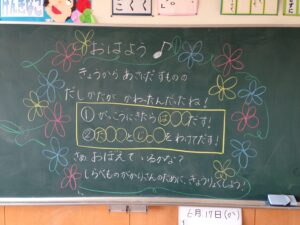 おはよう♪
きょうから あさにだすものの
だしかたが かわったんだったね！
① がっこうにきたら は◯◯だす！
② だ◯◯と じ◯◯をわけてだす！
さぁ おぼえて いるかな？
しらべものがかりさんのために、きょうりょくしよう！
6月17日(か)